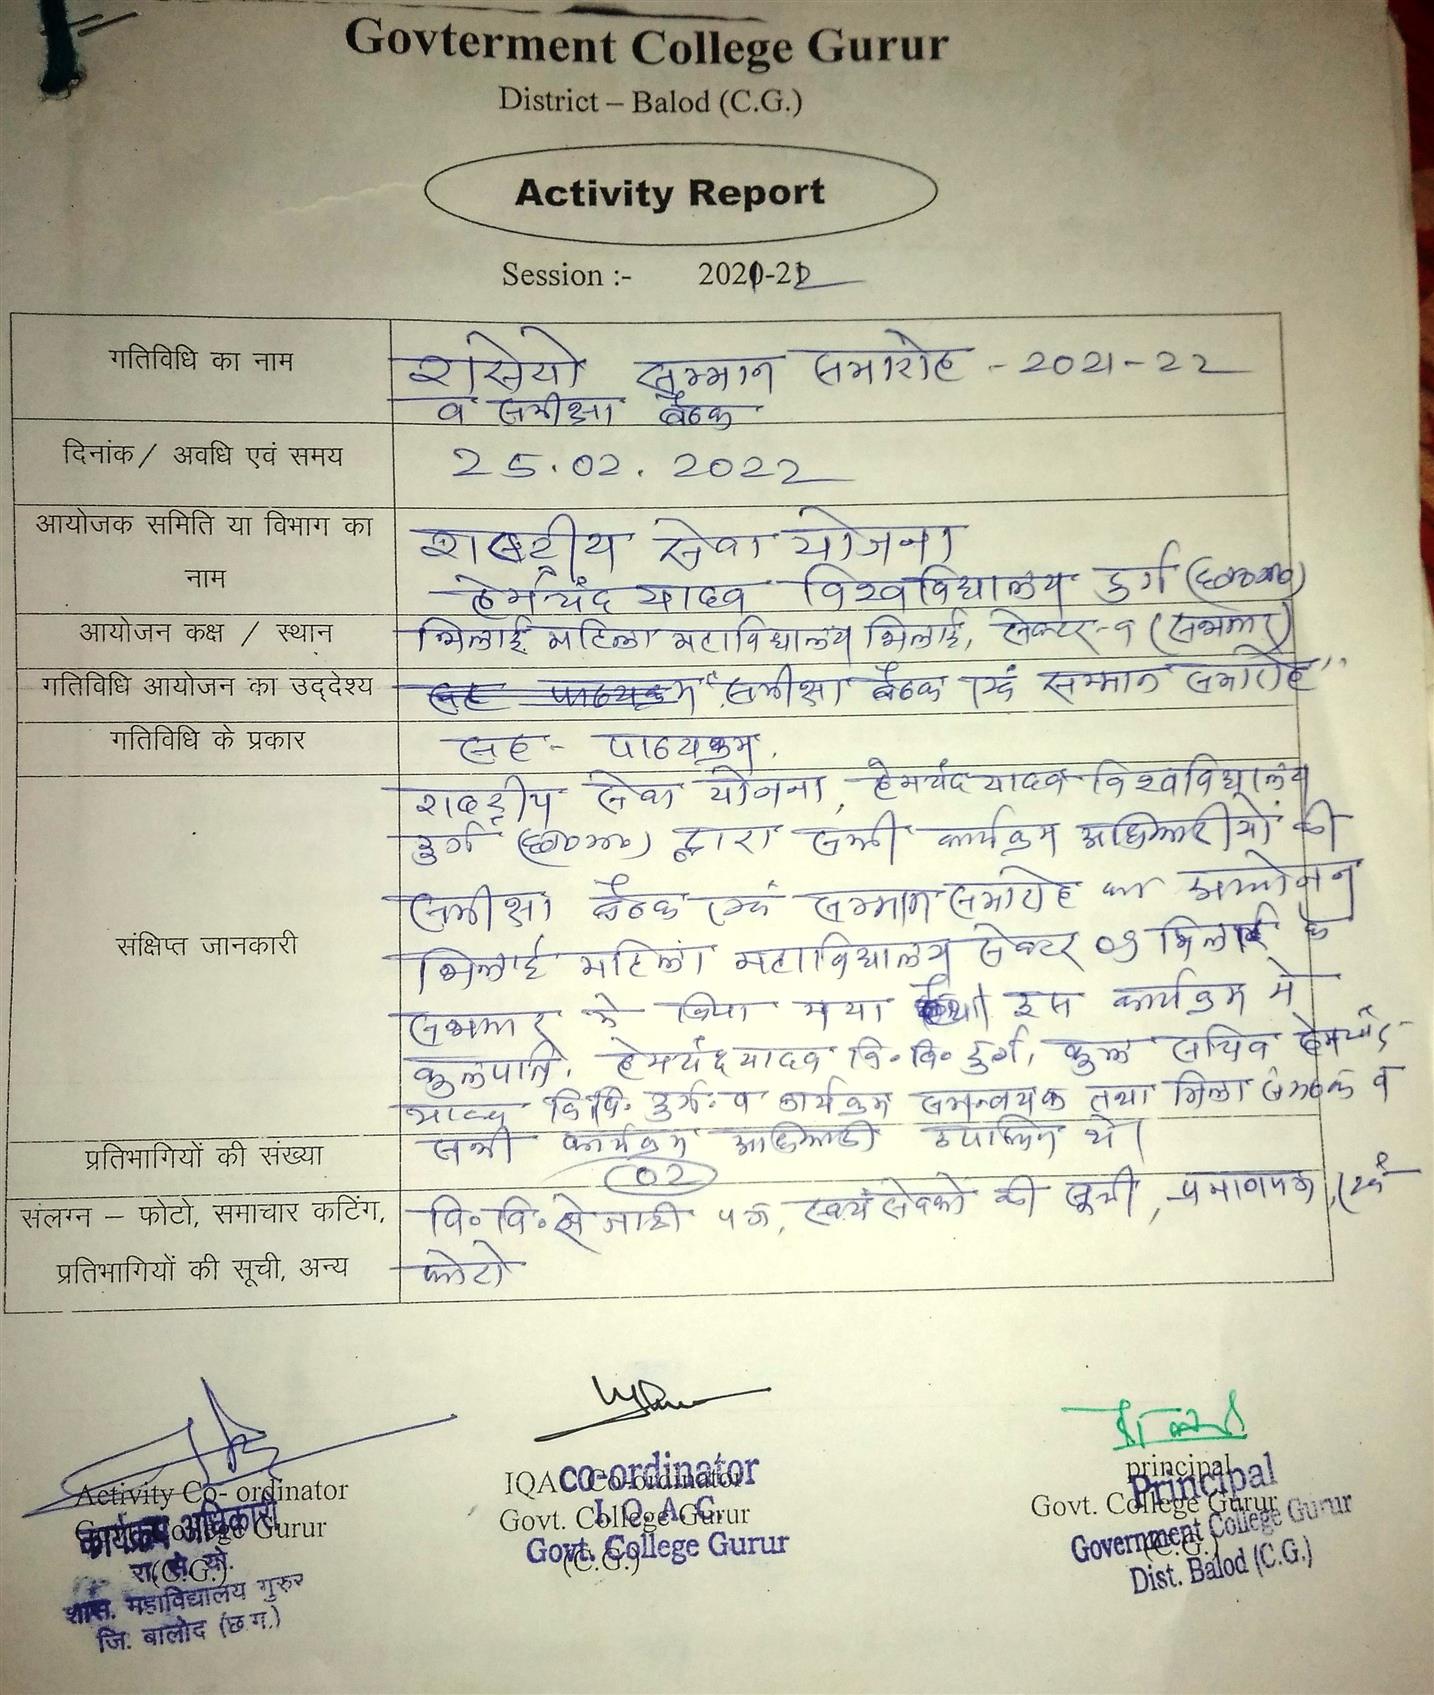 Govterment College Gurur
District – Balod (C.G.)
Activity Report
Session :- 2021-22
गतिविधि का नाम
रासेयो सम्मान समारोह - 2021-22
व समीक्षा बैठक
दिनांक / अवधि एवं समय
25.02.2022
आयोजक समिति या विभाग का
नाम
राष्ट्रीय सेवा योजना
हेमचंद यादव विश्वविद्यालय दुर्ग (छ०ग०)
आयोजन कक्ष / स्थान
भिलाई महिला महाविद्यालय भिलाई, सेक्टर-9 (सभागार)
गतिविधि आयोजन का उद्देश्य
"समीक्षा बैठक एवं सम्मान समारोह"
गतिविधि के प्रकार
सह - पाठ्यक्रम
संक्षिप्त जानकारी
राष्ट्रीय सेवा योजना, हेमचंद यादव विश्वविद्यालय
दुर्ग (छ०ग०) द्वारा सभी कार्यक्रम अधिकारीयों की
समीक्षा बैठक एवं सम्मान समारोह का आयोजन
भिलाई महिला महाविद्यालय सेक्टर 09 भिलाई के
सभागार में किया गया था इस कार्यक्रम मे
कुलपति, हेमचंद यादव वि॰ वि॰ दुर्ग, कुल सचिव हेमचंद
यादव वि.वि. दुर्ग व कार्यक्रम समन्वयक तथा जिला संगठक व
सभी कार्यक्रम अधिकारी उपस्थित थे।
प्रतिभागियों की संख्या
02
संलग्न – फोटो, समाचार कटिंग,
प्रतिभागियों की सूची, अन्य
वि॰ वि॰ से जारी पत्र, स्वयं सेवको की सूची, प्रमाणपत्र, एवं
फोटो
Activity Co- ordinator
Govt. College Gurur
(C.G.)
कार्यक्रम अधिकारी
रा. से. यो.
शास. महाविद्यालय गुरुर
जि. बालोद (छ.ग.)
IQAC Co-ordinator
Govt. College Gurur
(C.G.)
co-ordinator
I. Q. A. C.
Govt. College Gurur
principal
Govt. College Gurur
(C.G.)
Principal
Government College Gurur
Dist. Balod (C.G.)